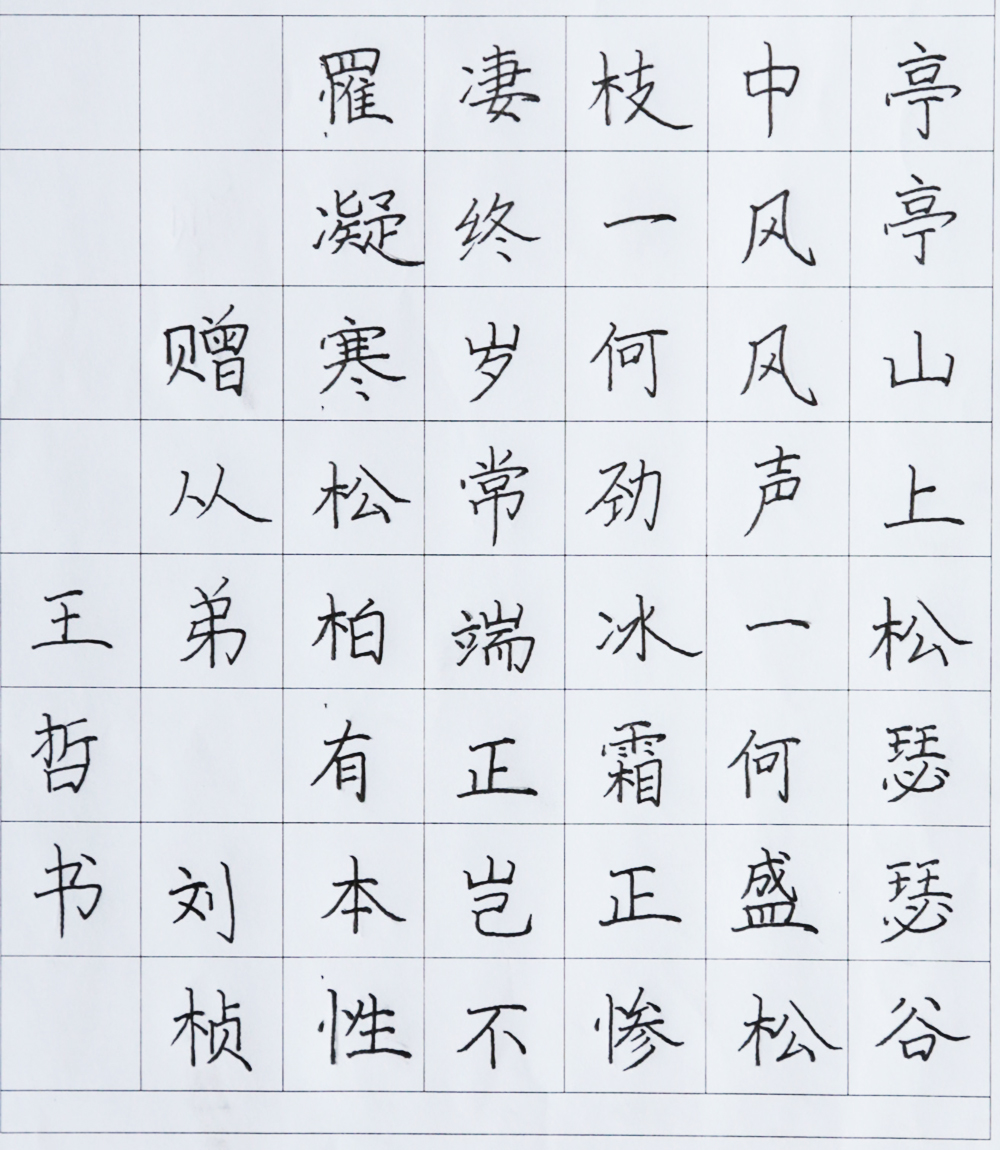 亭亭山上松瑟瑟谷
中风风声一何盛松
枝一何劲冰霜正惨
凄终岁常端正岂不
罹凝寒松柏有本性
赠从弟 刘桢
王哲书